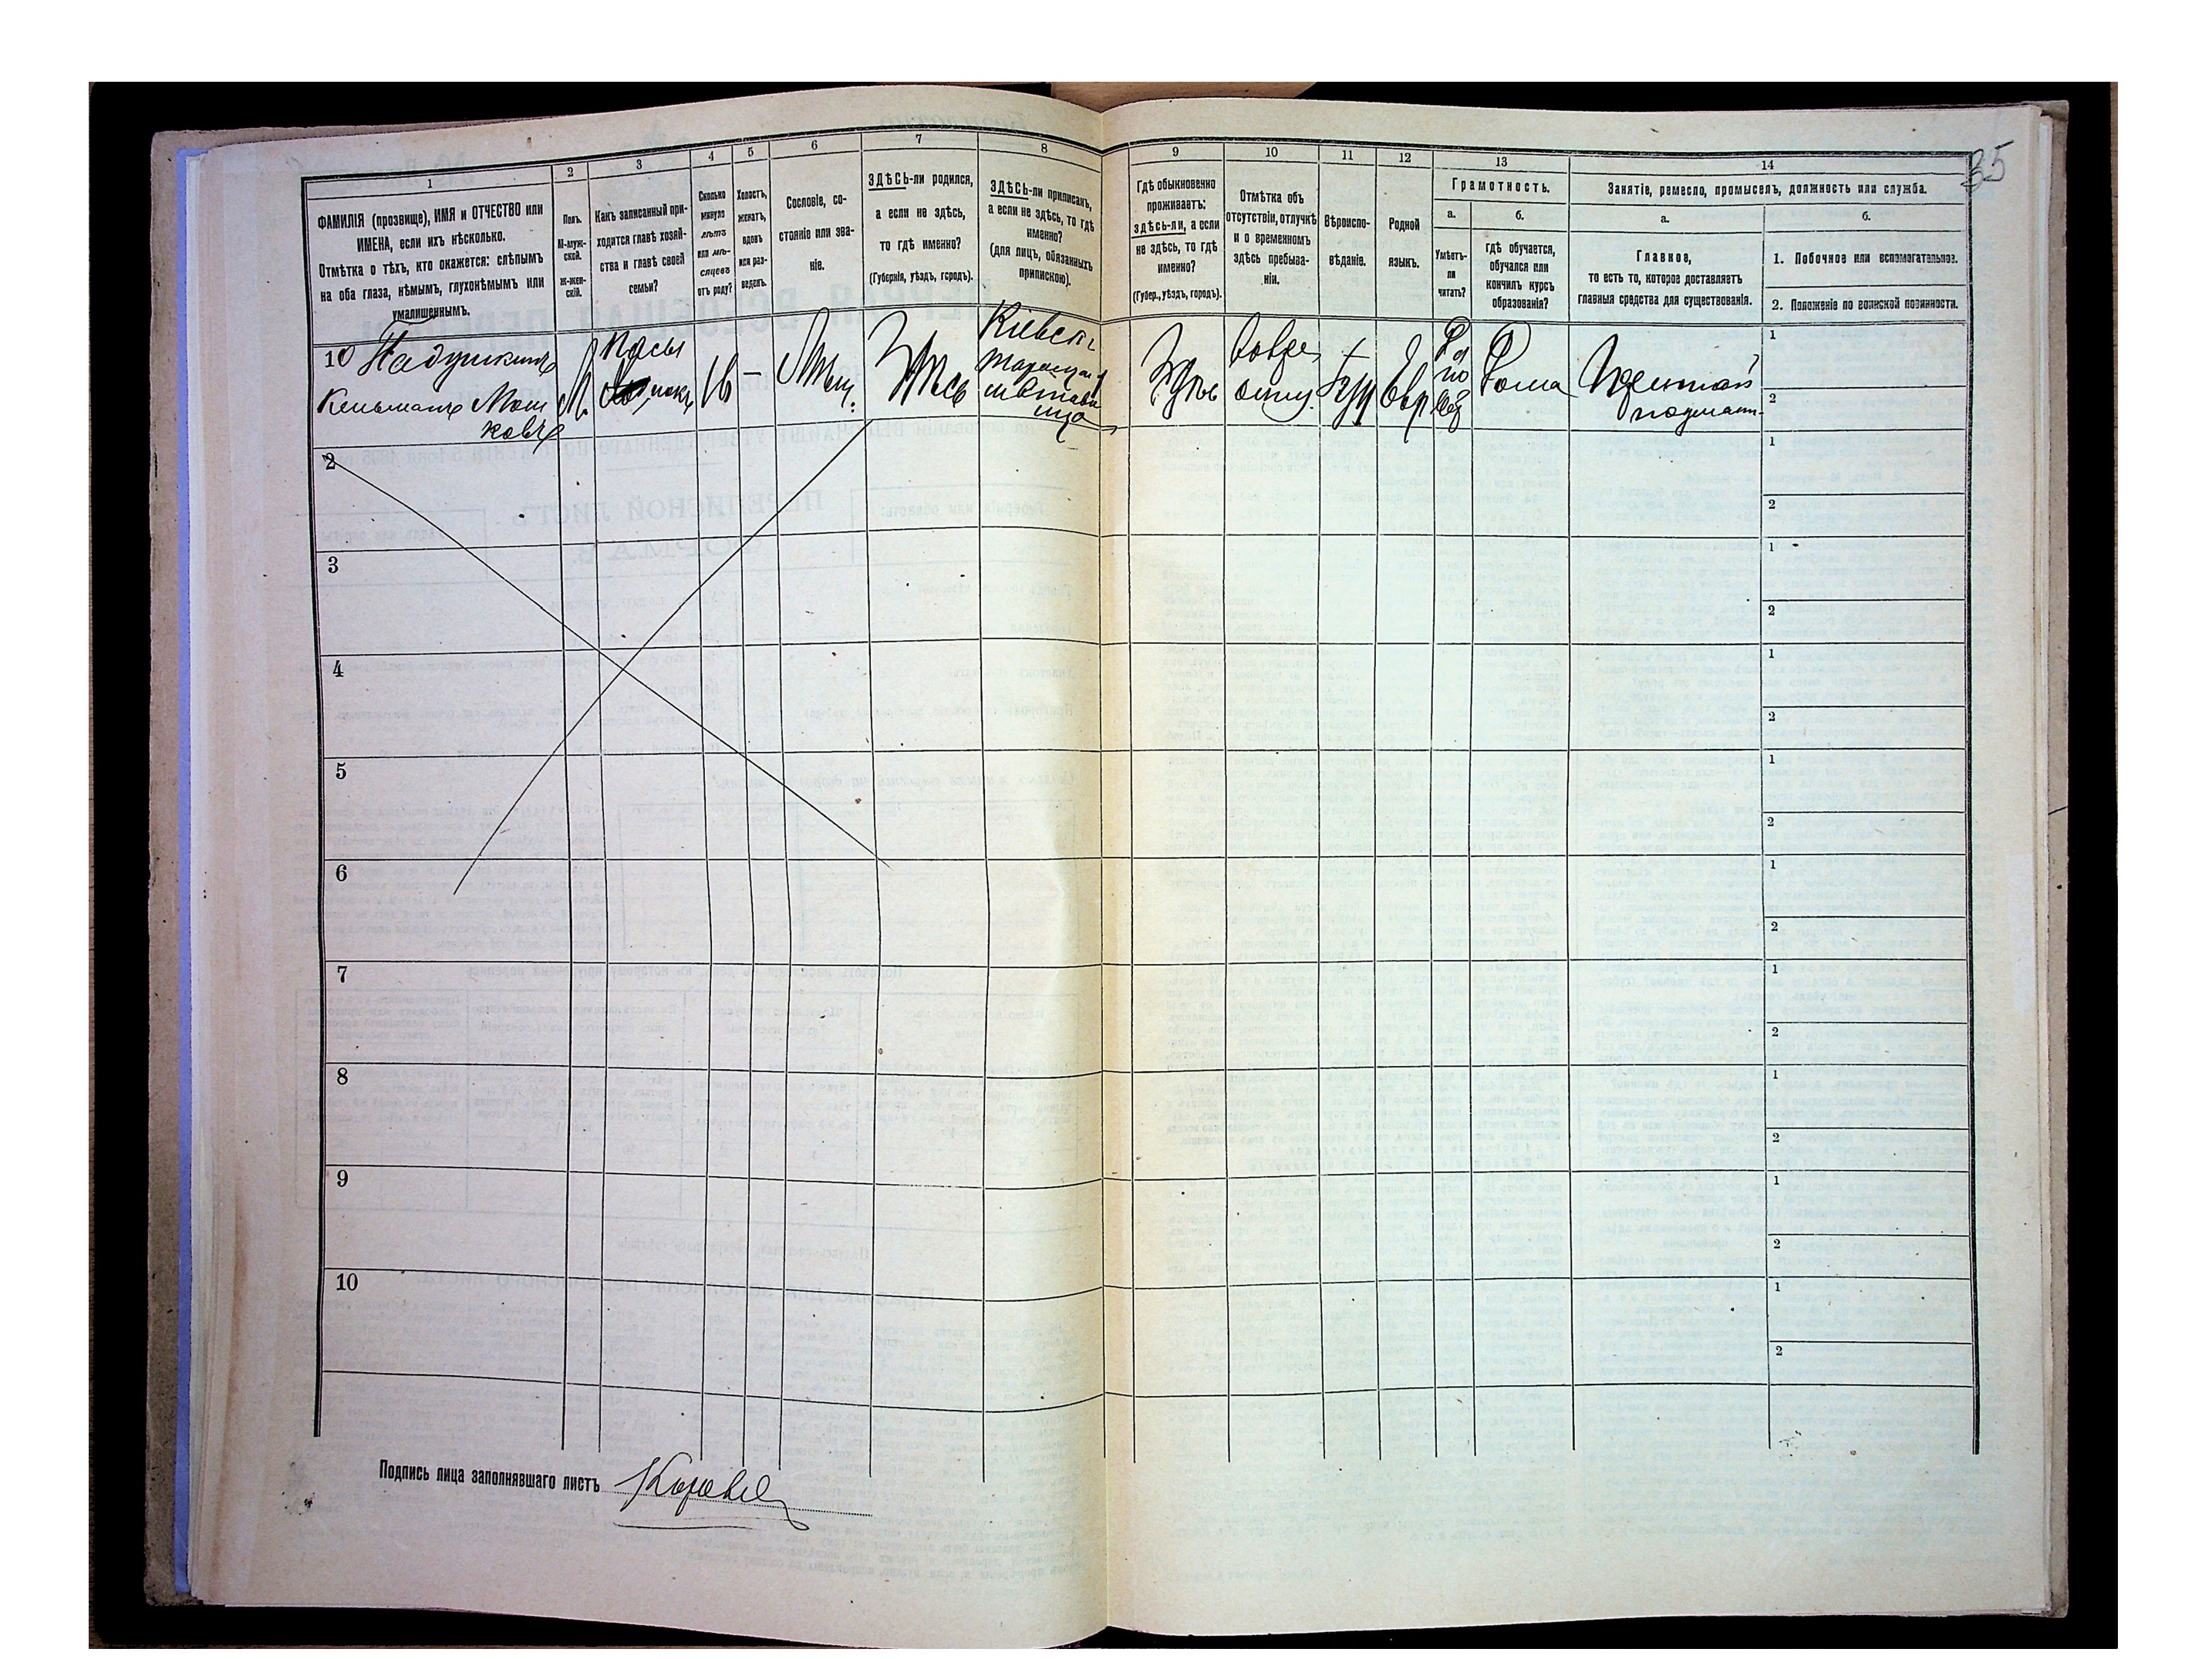 35
1
2
3
4
5
6
7
8
9
10
11
12
13
14
ФАМИЛІЯ (прозвище), ИМЯ и ОТЧЕСТВО или
ИМЕНА, если ихъ нѣсколько.
Отмѣтка о тѣхъ, кто окажется: слѣпымъ
на оба глаза, нѣмымъ, глухонѣмымъ или
умалишеннымъ.
Полъ.
М-муж-
ской.
Ж-жен-
скій.
Какъ записанный при-
ходится главѣ хозяй-
ства и главѣ своей
семьи?
Сколько
минуло
лѣтъ
или мѣ-
сяцевъ
отъ роду?
Холостъ,
женатъ,
вдовъ
или раз-
веденъ.
Сословіе, со-
стояніе или зва-
ніе.
ЗДѢСЬ-ли родился,
а если не здѣсь,
то гдѣ именно?
(Губернія, уѣздъ, городъ).
ЗДѢСЬ-ли приписанъ,
а если не здѣсь, то гдѣ
именно?
(для лицъ, обязанныхъ
припискою).
Гдѣ обыкновенно
проживаетъ:
здѣсь-ли, а если
не здѣсь, то гдѣ
именно?
(Губер., уѣздъ, городъ).
Отмѣтка объ
отсутствіи, отлучкѣ
и о временномъ
здѣсь пребыва-
ніи.
Вѣроиспо-
вѣданіе.
Родной
языкъ.
Грамотность.
а.
Умѣетъ-
ли
читать?
б.
гдѣ обучается,
обучался или
кончилъ курсъ
образованія?
Занятіе, ремесло, промыселъ, должность или служба.
а.
Главное,
то есть то, которое доставляетъ
главныя средства для существованія.
б.
1. Побочное или вспомогательное.
2. Положеніе по воинской повинности.
10 Падушкинъ
Кельманъ Мош
ковъ
М.
16
—
Мѣщ.
Здѣсь
Кіевск
Таращан
Здѣсь
Іуд
Евр
Дома
1
2
2
1
2
3
1
2
4
1
2
5
1
2
6
1
2
7
1
2
8
1
2
9
1
2
10
1
2
Подпись лица заполнявшаго листъ